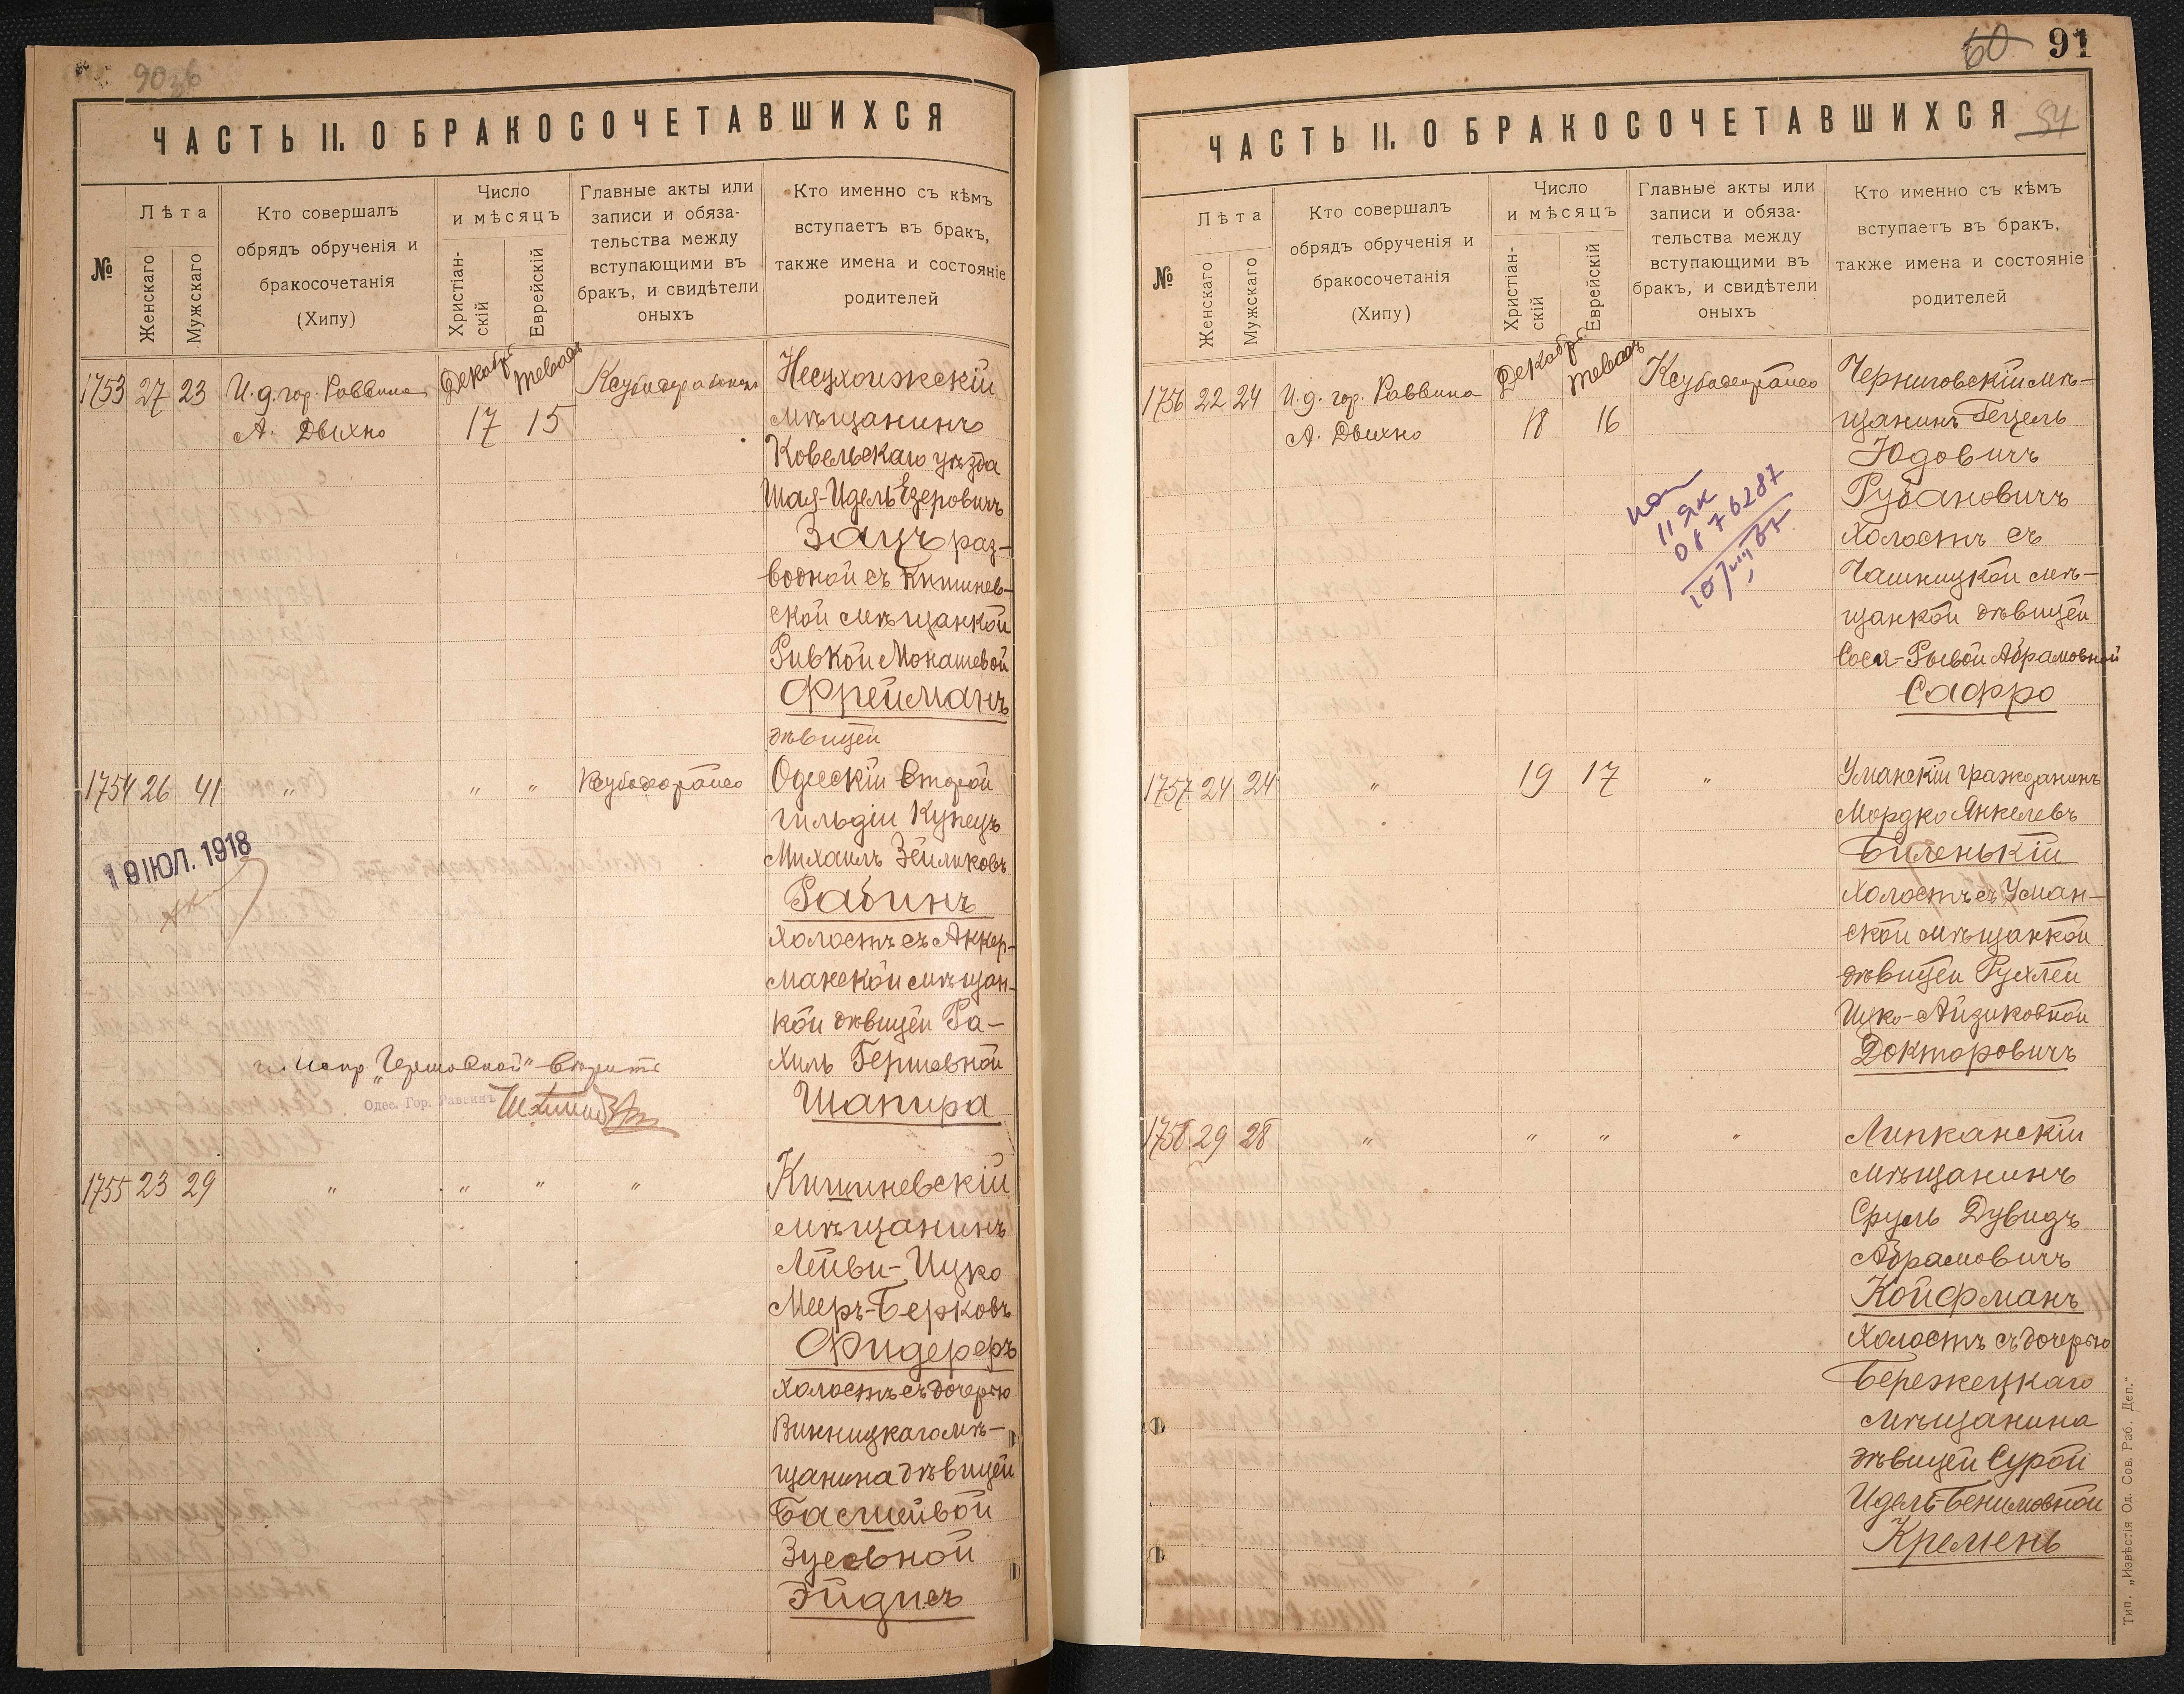 90 зв
ЧАСТЬ II. О БРАКОСОЧЕТАВШИХСЯ
№
Лѣта
Женскаго
Мужскаго
Кто совершалъ
обрядъ обрученія и
бракосочетанія
(Хипу)
Число
и мѣсяцъ
Христіан-
скій
Еврейскій
Главные акты или
записи и обяза-
тельства между
вступающими въ
бракъ, и свидѣтели
оныхъ
Кто именно съ кѣмъ
вступаетъ въ бракъ,
также имена и состояніе
родителей
1753 27 23 И. д. гор. Раввина
А. Двихно
Декабр. Теваѳъ
17 15
Несухоижскій
мѣщанинъ
Ковельскаго уѣзда
Шая-Идель Езеровичъ
Зацъ раз-
водной съ Кишинев-
ской мѣщанкой
Ривкой Мокашевой
Фрейманъ
дѣвицей
1754 26 41 " " "
Одесскій второй
гильдіи Купецъ
Михаилъ Зейликовъ
Рабинъ
холостъ съ Аккер-
манской мѣщан-
кой дѣвицей Ра-
хиль Гершовной
Шапира
19 ІЮЛ. 1918
испр. „Гершовной" вѣрить
Одес. Гор. Раввинъ
1755 23 29 " " " "
Кишиневскій
мѣщанинъ
Лейви-Ицко
Мееръ-Берковъ
Фидереръ
холостъ съ дочерью
Винницкаго мѣ-
щанина дѣвицей
Басшейвой
Зусевной
Эйдисъ
60 91
ЧАСТЬ II. О БРАКОСОЧЕТАВШИХСЯ
№
Лѣта
Женскаго
Мужскаго
Кто совершалъ
обрядъ обрученія и
бракосочетанія
(Хипу)
Число
и мѣсяцъ
Христіан-
скій
Еврейскій
Главные акты или
записи и обяза-
тельства между
вступающими въ
бракъ, и свидѣтели
оныхъ
Кто именно съ кѣмъ
вступаетъ въ бракъ,
также имена и состояніе
родителей
1756 22 24 И. д. гор. Раввина
А. Двихно
Декабр. Теваѳъ
18 16
Черниговскій мѣ-
щанинъ Гецель
Юдовичъ
Рубановичъ
холостъ съ
Чашницкой мѣ-
щанкой дѣвицей
Сося-Рывой Абрамовной
Сафро
1757 24 24 " 19 17 "
Уманскій гражданинъ
Мордко Янкелевъ
Биленькій
холостъ съ Уман-
ской мѣщанкой
дѣвицей Рухлей
Ицко-Айзиковной
Докторовичъ
1758 29 28 " " " "
Липканскій
мѣщанинъ
Сруль Дувидъ
Абрамовичъ
Койфманъ
холостъ съ дочерью
Бережецкаго
мѣщанина
дѣвицей Сурой
Идель-Бенимовной
Кремень
Тип. „Извѣстія Од. Сов. Раб. Деп."